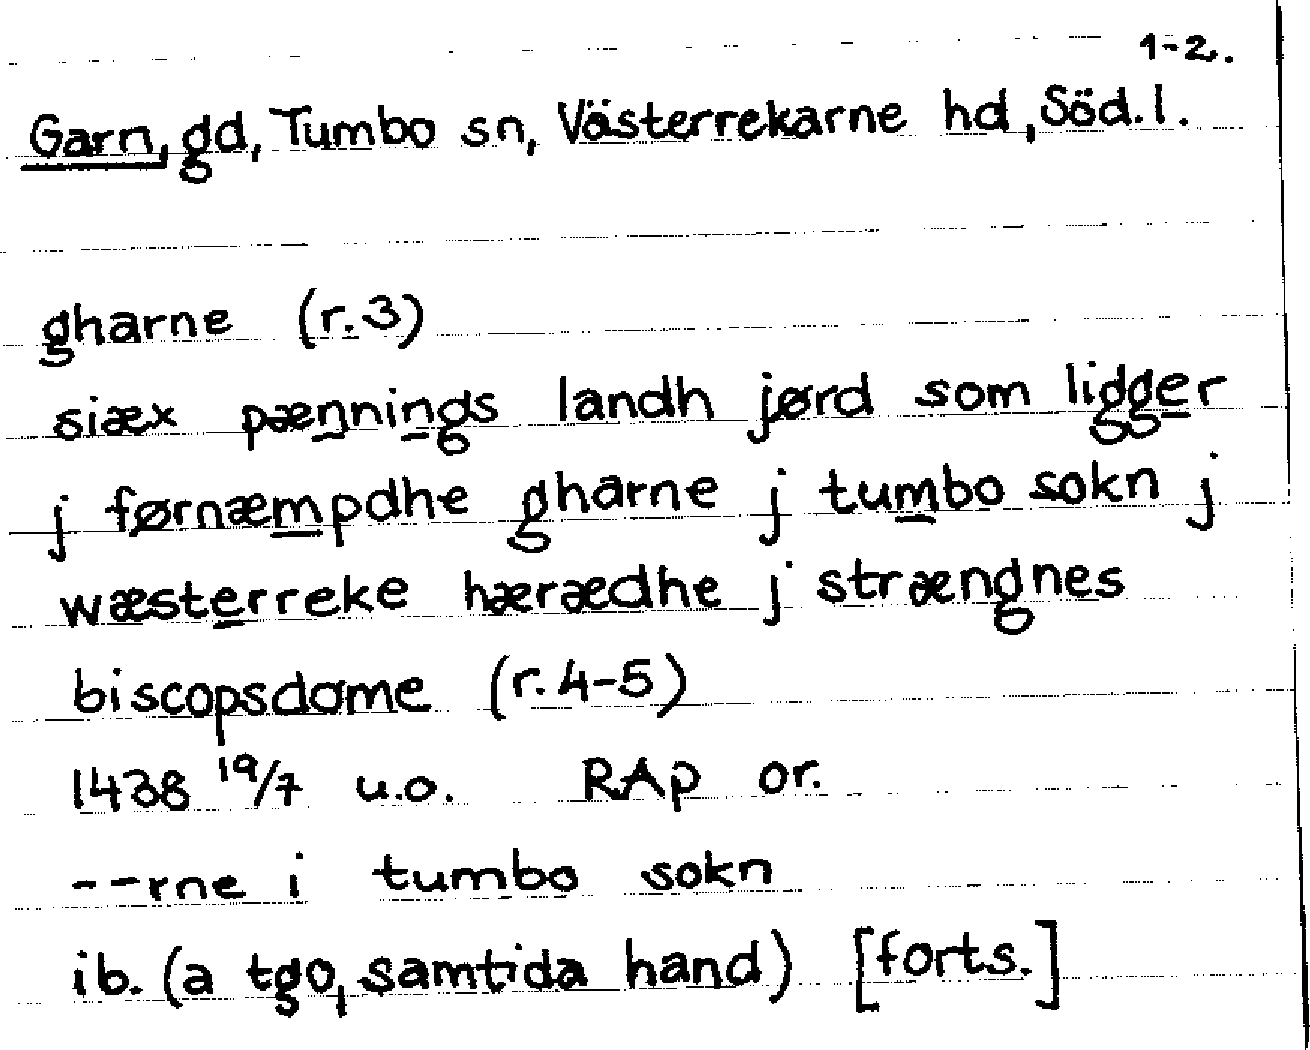 1-2.
Garn, gd, Tumbo sn, Västerrekarne hd, Söd.l.
gharne (r.3)
siæx pænnings landh jørd som ligger
j førnæmpdhe gharne j tumbo sokn j
wæsterreke hærædhe j strængnes
biscopsdøme (r.4-5)
1438 19/7 u.o. RAp or.
--rne i tumbo sokn
ib. (a tgo, samtida hand) [forts.]